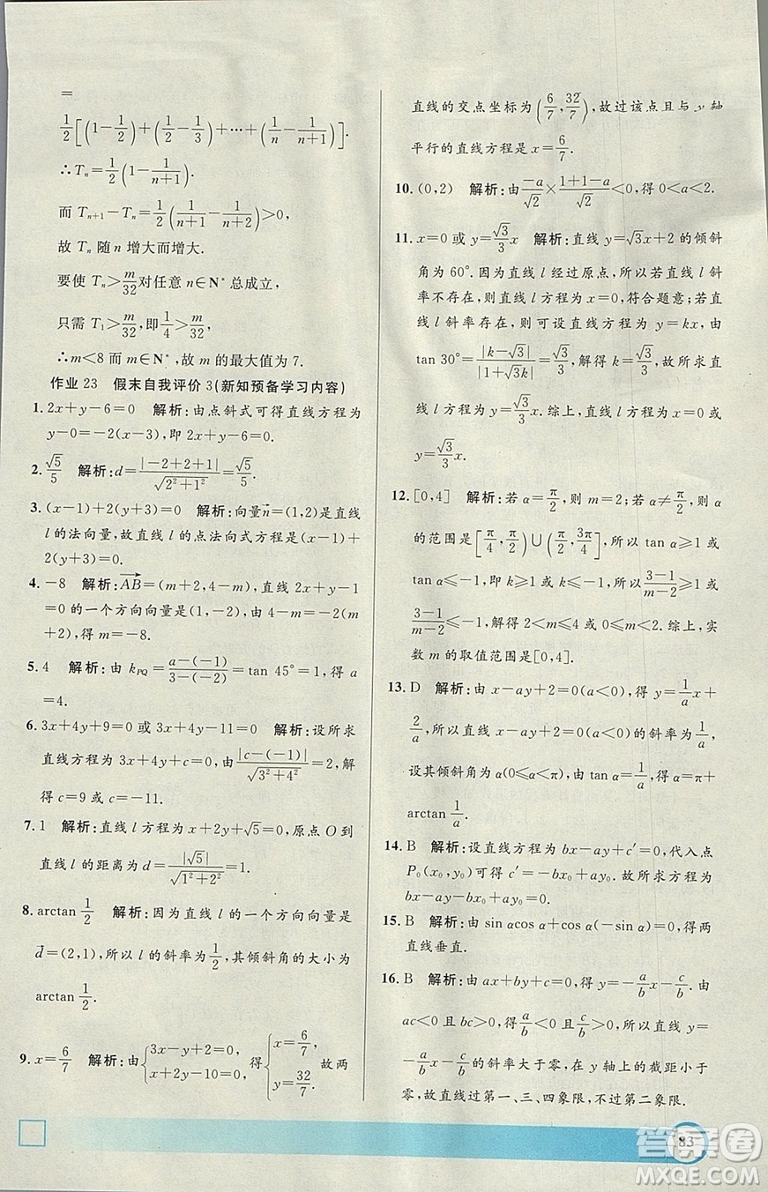 =
1/2[(1-1/2)+(1/2-1/3)+…+(1/n-1/(n+1))].
∴Tₙ=1/2(1-1/(n+1)).
而 Tₙ₊₁-Tₙ=1/2(1/(n+1)-1/(n+2))>0,
故 Tₙ 随 n 增大而增大.
要使 Tₙ>m/32对任意 n∈N*总成立,
只需 T₁>m/32,即1/4>m/32,
∴m<8 而 m∈N*,故 m 的最大值为 7.
作业 23 假末自我评价 3(新知预备学习内容)
1. 2x+y-6=0 解析:由点斜式可得直线方程为
y-0=-2(x-3),即 2x+y-6=0.
2. √5/5 解析:d=|-2+2+1|/√(2²+1²)=√5/5.
3. (x-1)+2(y+3)=0 解析:向量n⃗=(1,2)是直线
l的法向量,故直线 l 的点法向式方程是(x-1)+
2(y+3)=0.
4. -8 解析:AB⃗=(m+2,4-m),直线 2x+y-1
=0 的一个方向向量是(1,-2),由 4-m=-2(m
+2),得 m=-8.
5. 4 解析:由 k_PQ=(a-(-1))/(3-(-2))=tan 45°=1,得 a
=4.
6. 3x+4y+9=0 或 3x+4y-11=0 解析:设所求
直线方程为 3x+4y+c=0,由|c-(-1)|/√(3²+4²)=2,解
得 c=9 或 c=-11.
7. 1 解析:直线 l 方程为 x+2y+√5=0,原点 O 到
直线 l 的距离为 d=|√5|/√(1²+2²)=1.
8. arctan 1/2 解析:因为直线 l 的一个方向向量是
d⃗=(2,1),所以 l 的斜率为1/2,其倾斜角的大小为
arctan 1/2.
9. x=6/7 解析:由{3x-y+2=0, x+2y-10=0,得{x=6/7, y=32/7.故两
直线的交点坐标为(6/7,32/7),故过该点且与 y 轴
平行的直线方程是 x=6/7.
10. (0,2) 解析:由-a/√2×(1+1-a)/√2<0,得 0<a<2.
11. x=0 或 y=√3/3x 解析:直线 y=√3x+2 的倾斜
角为 60°.因为直线 l 经过原点,所以若直线 l 斜
率不存在,则直线 l 方程为 x=0,符合题意;若直
线 l 斜率存在,则可设直线方程为 y=kx,由
tan 30°=|k-√3|/|1+√3k|,解得 k=√3/3.故所求直
线 l 方程为 y=√3/3x.综上,直线 l 方程为 x=0 或
y=√3/3x.
12. [0,4] 解析:若 α=π/2,则 m=2;若 α≠π/2,α
的范围是[π/4,π/2)∪(π/2,3π/4],则 tan α≥1 或
tan α≤-1,即 k≥1 或 k≤-1,所以(3-1)/(m-2)≥1 或
(3-1)/(m-2)≤-1,解得 2<m≤4 或 0≤m<2.综上,实
数 m 的取值范围是[0,4].
13. D 解析:由 x-ay+2=0(a<0),得 y=1/a x+
2/a,所以直线 x-ay+2=0(a<0)的斜率为1/a,
设其倾斜角为 α(0≤α<π),由 tan α=1/a,得 α=π+
arctan 1/a.
14. B 解析:设直线方程为 bx-ay+c′=0,代入点
P₀(x₀,y₀)得 c′=-bx₀+ay₀,故直线方程为
bx-ay-bx₀+ay₀=0.
15. B 解析:由 sin αcos α+cos α(-sin α)=0,得两
直线垂直.
16. B 解析:由 ax+by+c=0,得 y=-a/b x-c/b.由
ac<0 且 bc>0,得 ab<0,所以直线 y=-a/b x-c/b=
-a/b x-c/b的斜率大于零,在 y 轴上的截距小于
零,故直线过第一、三、四象限,不过第二象限.
83
答案圈
MXQE.COM